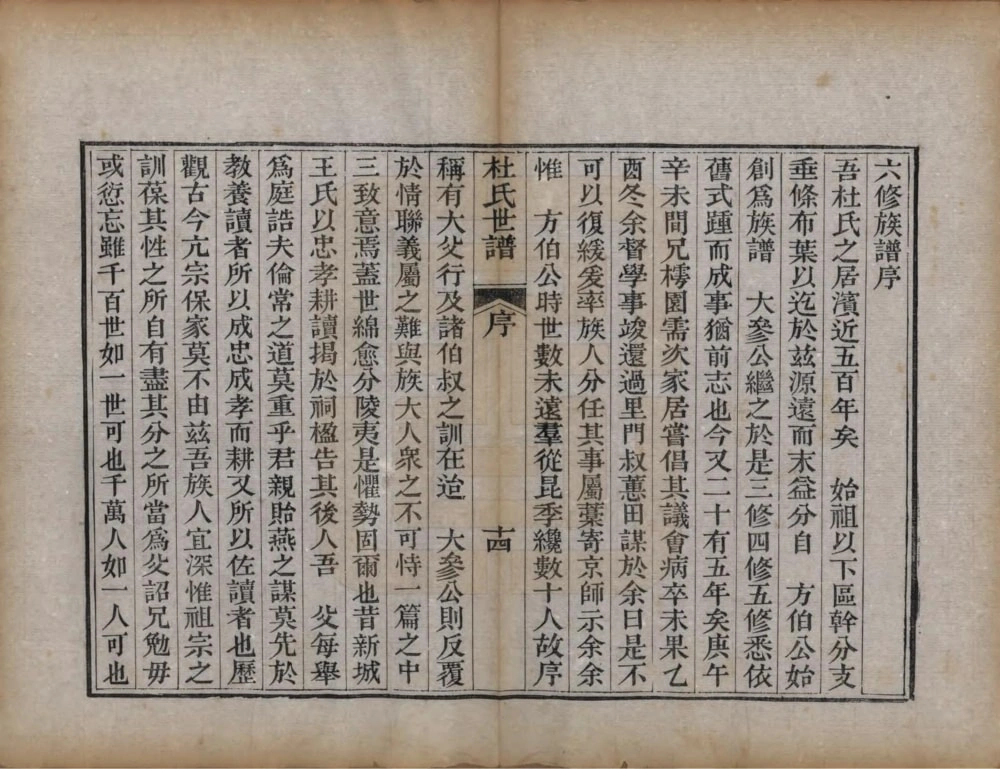 六修族譜序
吾杜氏之居濱近五百年矣　始祖以下區幹分支
垂條布葉以迄於茲源遠而末益分自　方伯公始
創爲族譜　大參公繼之於是三修四修五修悉依
舊式踵而成事猶前志也今又二十有五年矣庚午
辛未間兄樗園需次家居嘗倡其議會病卒未果乙
酉冬余督學事竣還過里門叔蕙田謀於余曰是不
可以復緩爰率族人分任其事屬藁寄京師示余余
惟　方伯公時世數未遠羣從昆季纔數十人故序
杜氏世譜　序　十四
稱有大父行及諸伯叔之訓在迨　大參公則反覆
於情聯義屬之難與族大人衆之不可恃一篇之中
三致意焉蓋世綿愈分陵夷是懼勢固爾也昔新城
王氏以忠孝耕讀揭於祠楹告其後人吾　父每舉
爲庭誥夫倫常之道莫重乎君親貽燕之謀莫先於
教養讀者所以成忠成孝而耕又所以佐讀者也歷
觀古今亢宗保家莫不由茲吾族人宜深惟祖宗之
訓葆其性之所自有盡其分之所當爲父詔兄勉毋
或愆忘雖千百世如一世可也千萬人如一人可也